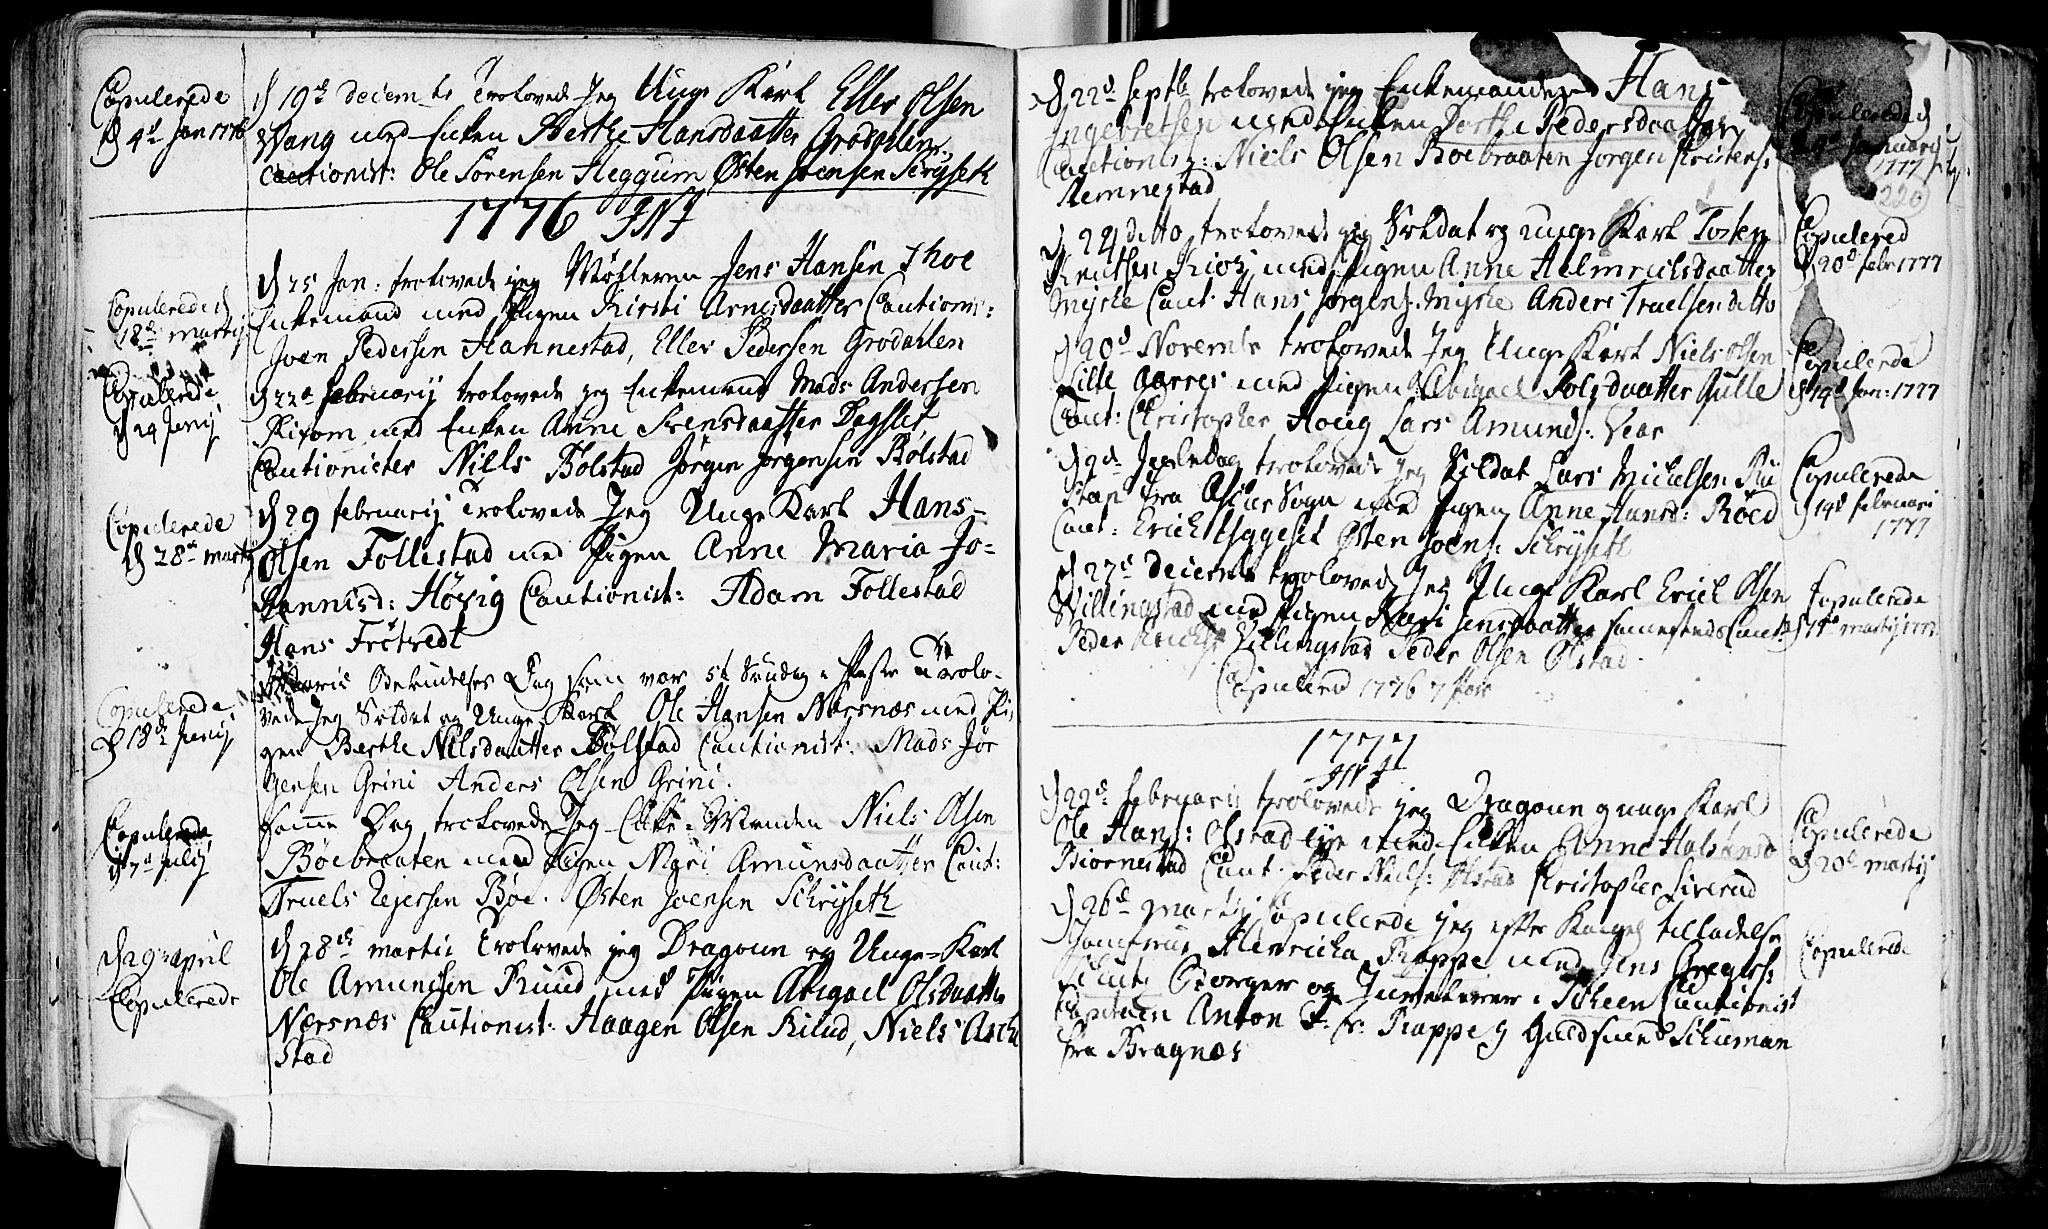 Copulerede
d 4d Jan 1776
d 19de decembr Trolovede Jeg Unge Karl Eller Olsen
Wang med Enken Berthe Hansdaatter Grodahlen
Cautionist: Ole Sørensen Heggum Østen Joensen Schryseth
1776 INJ
Copulerede d
18de martij
d 25 Jan: trolovede jeg Møhleren Jens Hansen Thoe
Enkemand med Pigen Kirsti Arnesdaatter Cautions:
Joen Pedersen Hannestad, Eller Pedersen Grodahlen
Copulerede
d 29 Junij
d 22d februarij trolovede jeg Enkemand Mads Andersen
med Enken Anne Svensdaatter Dagslet
Cautionister Niels Bolstad Jørgen Jørgensen Bølstad
Copulerede
d 28de martij
d 29 februarij Trolovede Jeg Unge Karl Hans
Olsen Follestad med Pigen Anne Maria Jo-
hannisd: Høvig Cautionist: Adam Follestad
Hans Frøtvedt
Copulerede
d 18de Junij
Mariæ Bebudelses Dag som var 5te Søndag i Faste Trolo-
vede Jeg Soldat og Unge Karl Ole Hansen Nærsnæs med Pi-
gen Berthe Nilsdaatter Bølstad Cautionist: Mads Jør
gensen Grini Anders Olsen Grini.
Copulerede
d 7de Julij
samme Dag trolovede Jeg Enke-Manden Niels Olsen
Bøebraaten med Pigen Mari Amunsdaatter Caut:
Truels Rejersen Bøe. Østen Joensen Schryseth
d 29 april
Copulerede
d 28de martii Trolovede jeg Dragoun og Unge Karl
Ole Amundsen Ruud med Pigen Abigael Olsdaatter
Nærsnæs Cautionist: Haagen Olsen Kilud, Niels Asch
stad
d 22d Septbr trolovede jeg Enkemanden Hans
Ingebretsen med Enken Dorthe Pedersdaatter
Cautionist: Niels Olsen Boebraaten Jørgen Kristens:
Remnestad
Copulerede d
9de Januarij
1777
220
d 24 ditto trolovede jeg Soldat og unge Karl Tosten
Knuthsen Kios med Pigen Anne Helmrichsdaatter
Myhre Caut. Hans Jørgens. Myhre Anders Truelsen ditto
Copulered
d 20d febr 1777
d 20d Novembr trolovede Jeg Unge Karl Niels Olsen
Lille Aarres med Pigen Abigael Polsdaatter Gulle
Caut: Christopher Houg Lars Amunds: Vear
Copulerede
d 19d Jan: 1777
d 2d Juledag trolovede jeg Soldat Lars Mickelsen Ru
stan fra Asker Sogn med Pigen Anne Hansd: Røed
Caut: Erich Hyggeset Østen Joens: Schryseth
Copulerede
d 19d februari
1777
d 27de Decembr trolovede Jeg Unge Karl Erich Olsen
Villingstad med Pigen Kari Jensdaatter sammesteds Caut:
Peder Villingstad Peder Olsen Olstad.
Copulerede
d 17d martij 1777
Copulered 1776 7 Par
1777
INJ
d 22d februarii trolovede jeg Dragoun og unge Karl
Ole Hans: Olstad eje med Enken Anne Halstensd
Biørnestad Caut. Peder Niels: Olstad Kristopher Liverud
Copulerede
d 20d martij
d 26d martij Copulerede jeg efter Kongel tilladelse
Jomfrue Henricha Rappe med Jens Gregers:
Borger og Inwohner i Scheen Cautionist
Capitain Anton F: v: Rappe og Guldsmed Schuman
fra Bragnæs
Copulerede